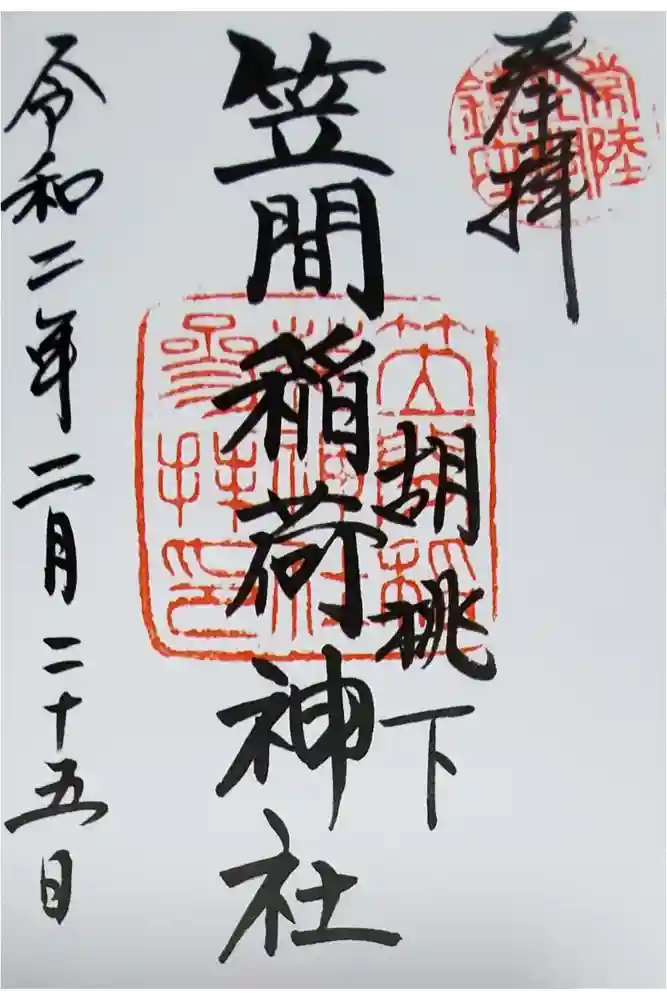 奉拝
胡桃下
笠間稲荷神社
令和二年二月二十五日
笠間稲
荷神社
参拝印